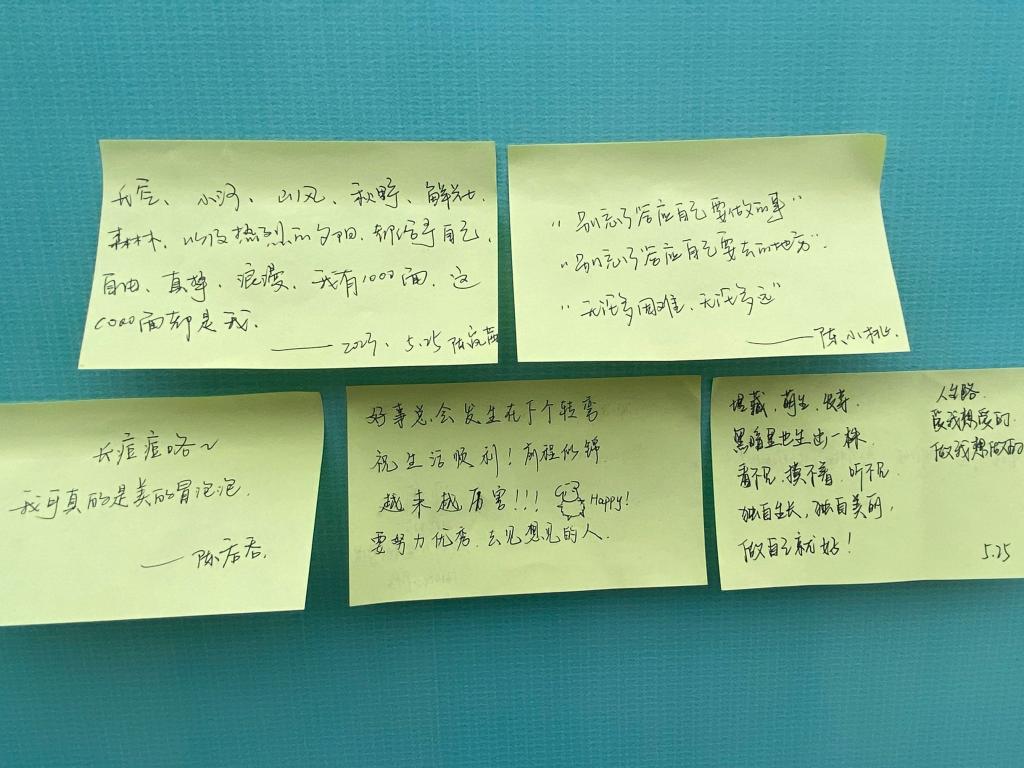 天空、小河、山风、秋野、鲜花、
森林、以及热烈的夕阳、都活得自己、
自由、真挚、浪漫、我有1000面、这
1000面都是我、
——2023、5.25 陈
“别忘了答应自己要做的事”
“别忘了答应自己要去的地方”
“无论多困难、无论多远”
——陈小桃、
长痘痘咯~
我可真的是美的冒泡泡、
——陈
好事总会发生在下个转弯
祝生活顺利！前程似锦
越来越厉害!!! Happy!
要努力优秀、去见想见的人、
埋藏、萌生、发芽、
黑暗里也生出一株、
看不见、摸不着、听不见
独自生长、独自美丽、
做自己就好！
人生路、
爱我想爱的、
做我想做的
5.25